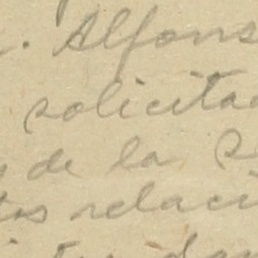 . Alfons
solicita
de la s
tos relaci